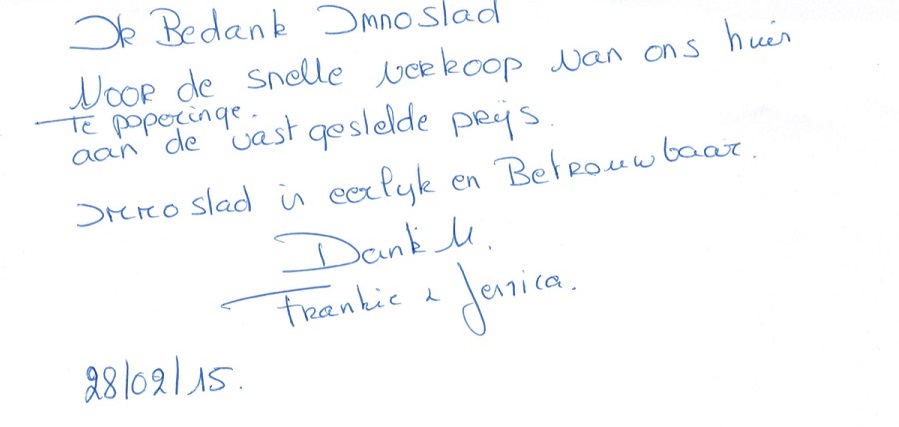 Ik Bedank Immoslad
Voor de snelle verkoop van ons huis
Te poperinge.
aan de vast geslelde prijs.
Immo slad is eerlyk en Betrouwbaar.
Dank U.
Frankie & Jessica.
28/02/15.